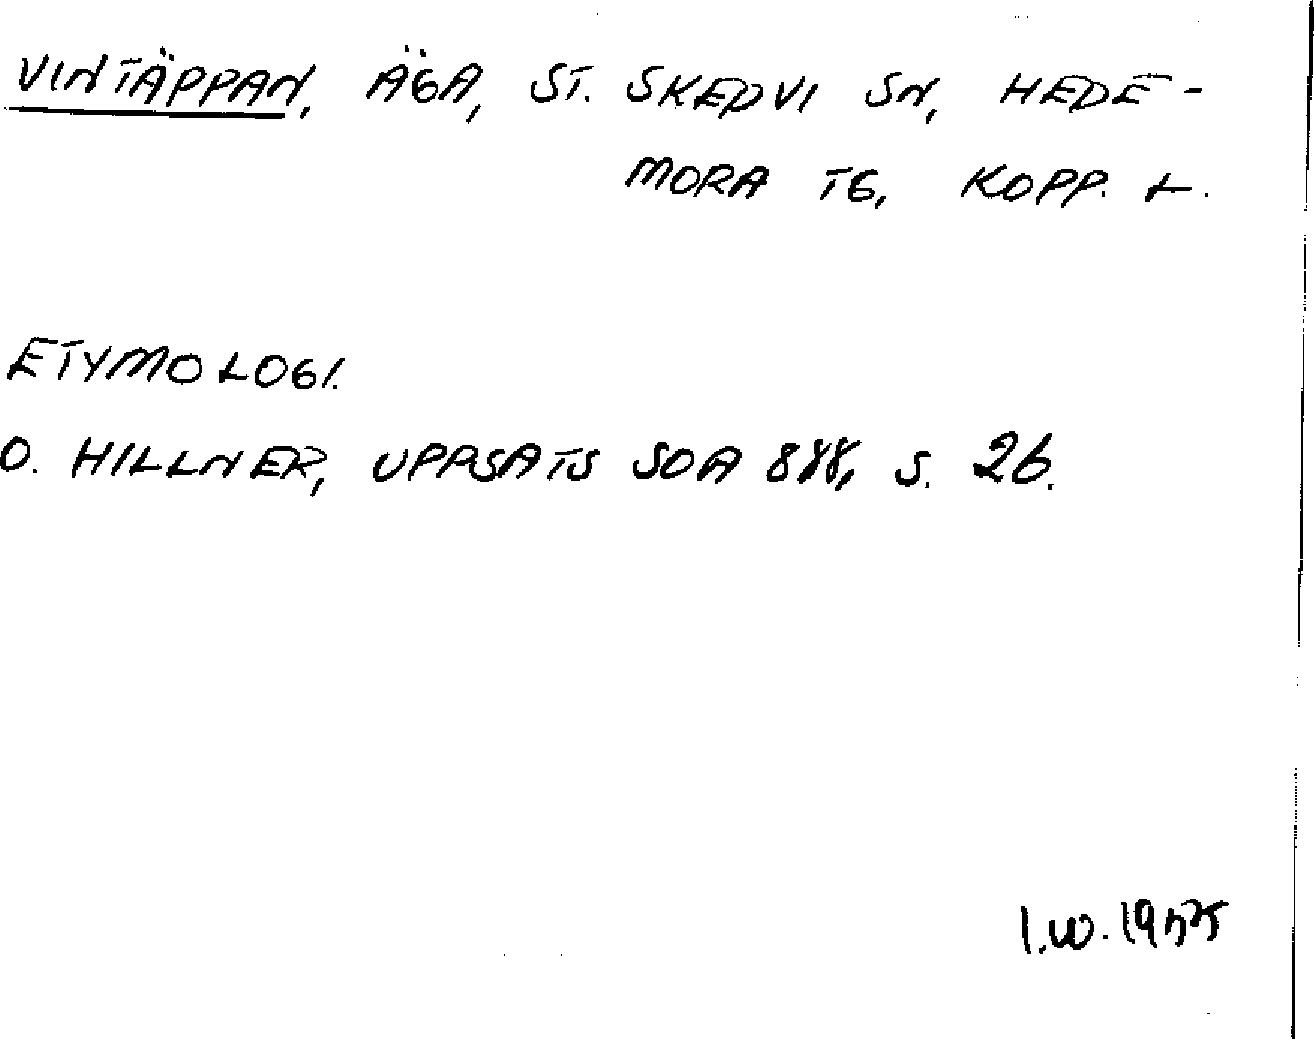 VINTÄPPAN, ÄGA, ST. SKEDVI SN, HEDE-
MORA TG, KOPP. L.
ETYMOLOGI.
O. HILLNER, UPPSATS SOA 888, S. 26.
I.W.